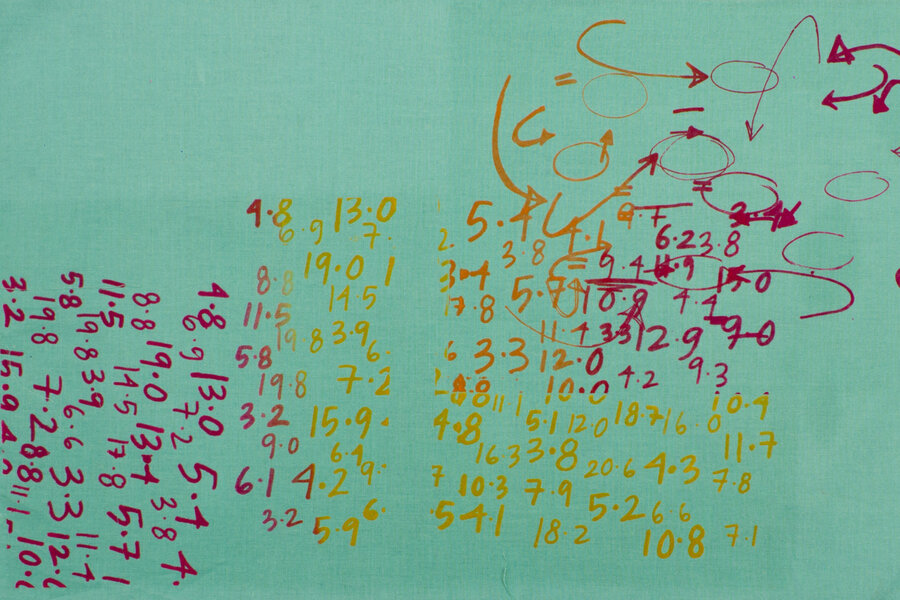 4.8 13.0
6.9 7.
8.8 19.0 1
14.5
11.5
19.8 3.9
5.8 6.
19.8 7.2
3.2 15.9.
9.0 6.4
6.1 4.2 9.
3.2 5.9 6.
5.4 4.1 9.7
3.8 6.2 3.8
3.4 9.4 11.9
17.8 5.7 10.9 4.4
11.4 3.3 12.9 9.0
6 3.3 12.0 9.3
10.0 4.2
4.8 5.1 12.0 18.7 16.0 10.9
16.3 3.8 11.7
7 10.3 7.9 20.6 4.3 7.8
.5 4.1 5.2 6.6
18.2 10.8 7.1
4.8 13.0 5.4 4.
6.9 7.2 3.8
8.8 19.0 13.4
14.5 17.8 5.7 1
11.5 3.9 11.4
19.8 6.6
5.8 3.3 12.0
19.8 7.2 8.8 11.1 10.0
3.2 15.9